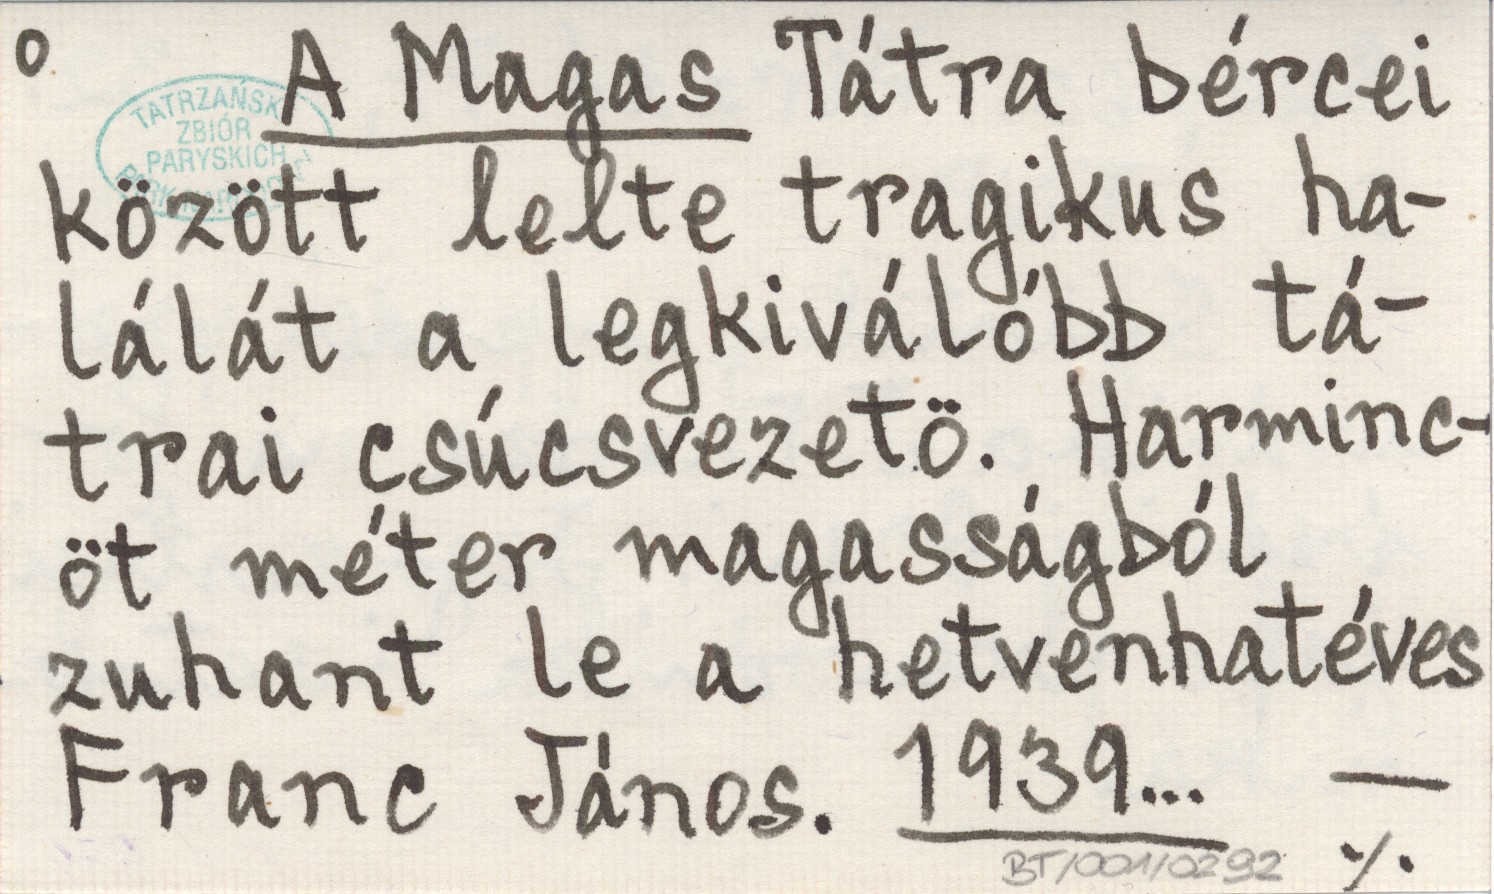 o A Magas Tátra bércei
között lelte tragikus ha-
lálát a legkiválóbb tá-
trai csúcsvezetö. Harminc-
öt méter magasságból
zuhant le a hetvenhatéves
Franc János. 1939... —
./.
TATRZAŃSKI
ZBIÓR
PARYSKICH
BT/001/0292